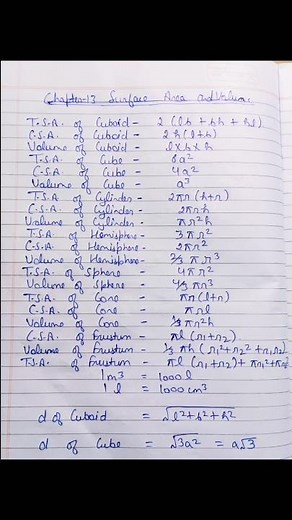 Chapter-13 Surface Area and Volume.
T.S.A. of Cuboid - 2 (lb + bh + hl)
C.S.A. of Cuboid - 2 h (l+b)
Volume of Cuboid - l x b x h
T.S.A. of Cube - 6a²
C.S.A of Cube - 4a²
Volume of Cube - a³
T.S.A of Cylinder - 2πr (h+r)
C.S.A. of Cylinder - 2πrh
Volume of Cylinder - πr²h
T.S.A. of Hemisphere - 3πr²
C.S.A. of Hemisphere - 2πr²
Volume of Hemisphere - 2/3 πr³
T.S.A. of Sphere - 4πr²
Volume of Sphere - 4/3 πr³
T.S.A. of Cone - πr (l+r)
C.S.A. of Cone - πrl
Volume of Cone - 1/3 πr²h
C.S.A. of Frustum - πl (r₁+r₂)
Volume of Frustum - 1/3 πh (r₁²+r₂²+r₁r₂)
T.S.A. of Frustum - πl (r₁+r₂)+πr₁²+πr₂²
1m³ = 1000l
1 l = 1000 cm³
d of Cuboid = √l²+b²+h²
d of Cube = √3a² = a√3